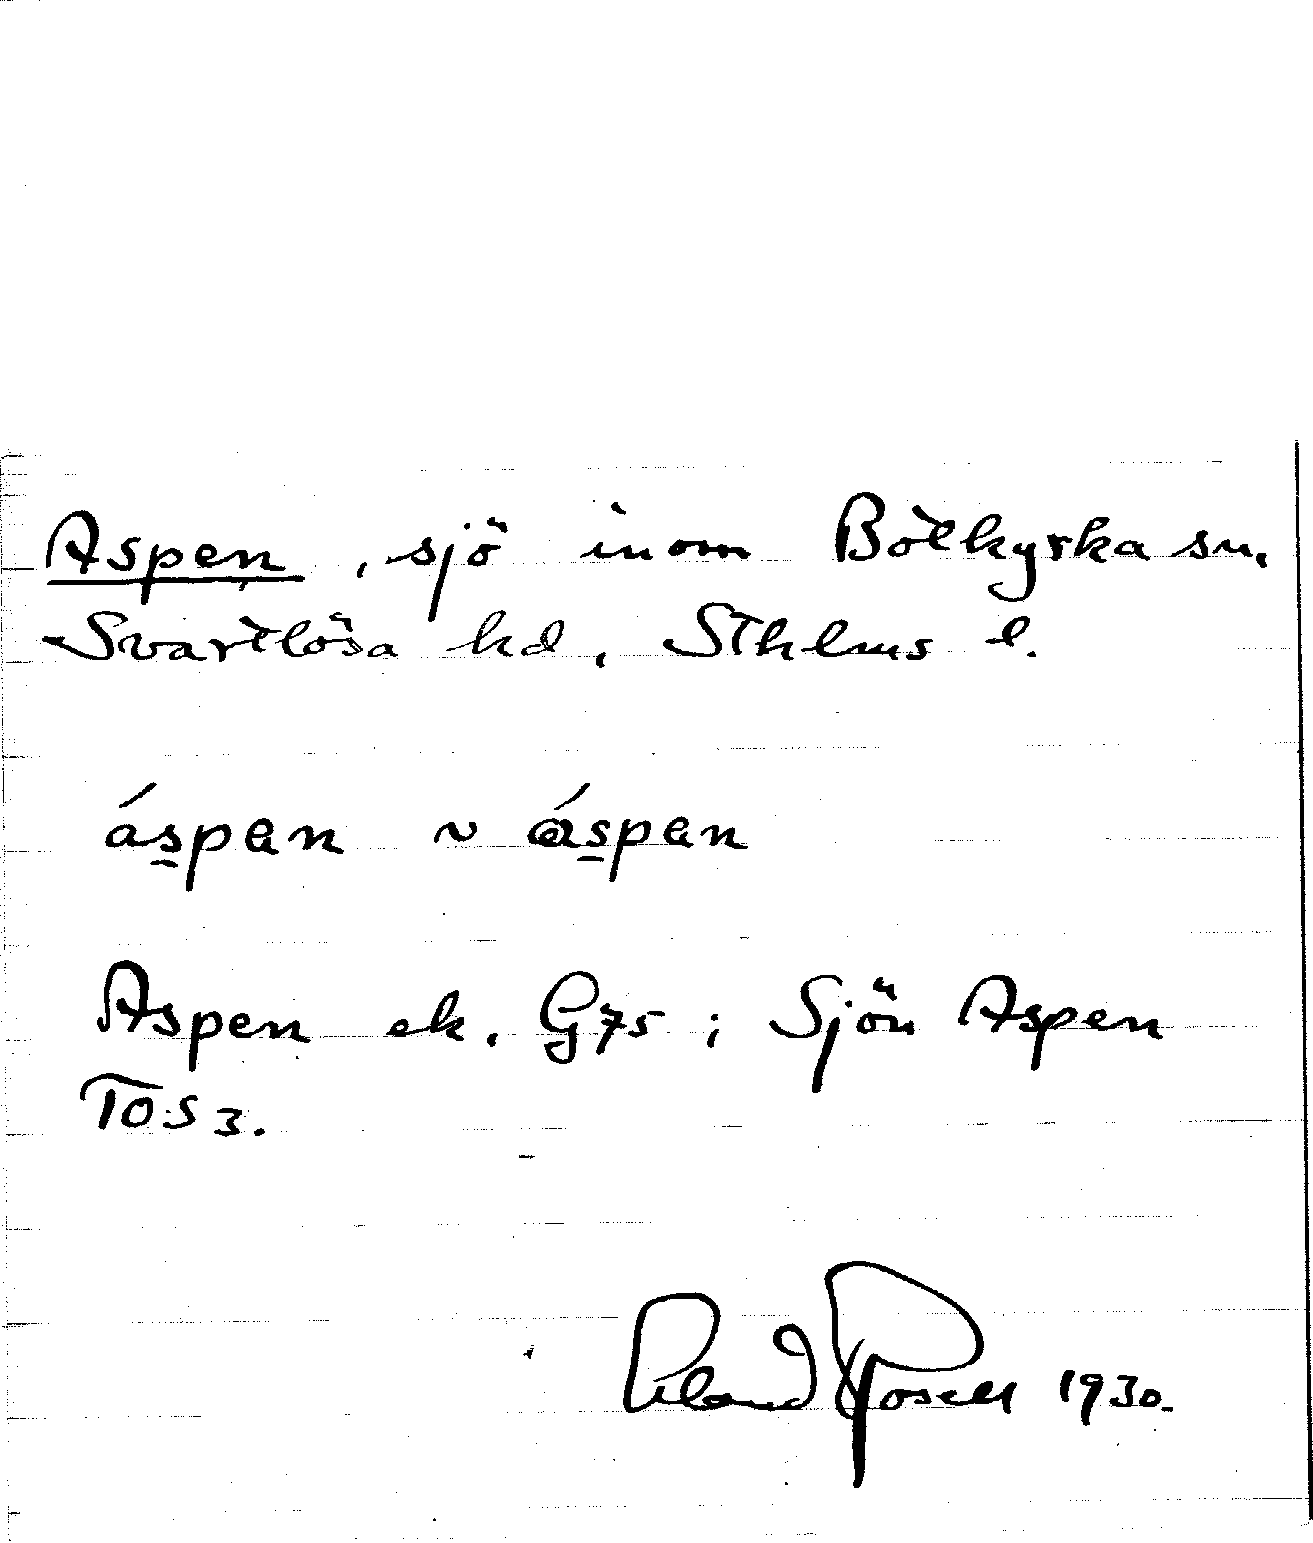 Aspen, sjö inom Botkyrka sn,
Svartlösa hd, Sthlms l.
áspen ~ áspen
Aspen ek. G75; Sjön Aspen
TOS 3.
Erland Rosell 1930.